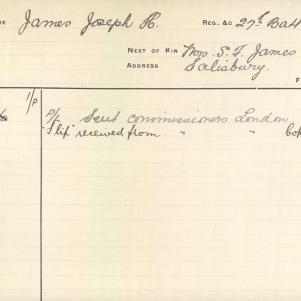 James Joseph R. REG. &C 27th Batt
NEXT OF KIN Mrs. S. J. James
ADDRESS Salisbury.
1/p
P/L Sent commissioners London
"Slip" received from " "